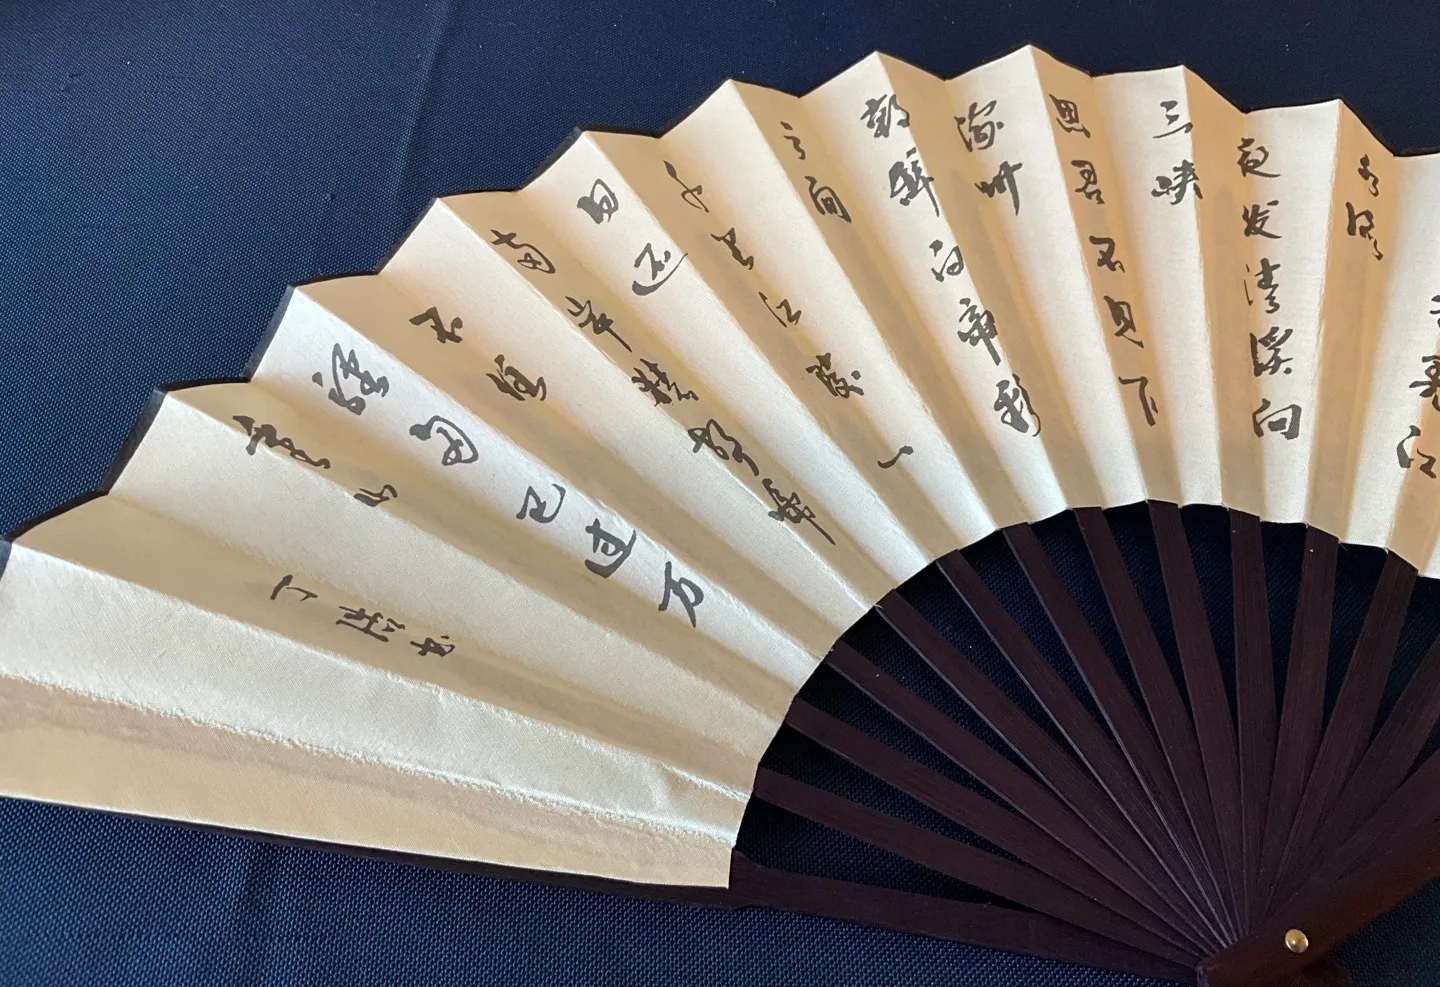 羌江
水流
夜发清溪向
三峡
思君不见下
渝州
朝辞白帝彩
云间
千里江陵一
日还
两岸猿声啼
不住
轻舟已过万
重山
丁 书